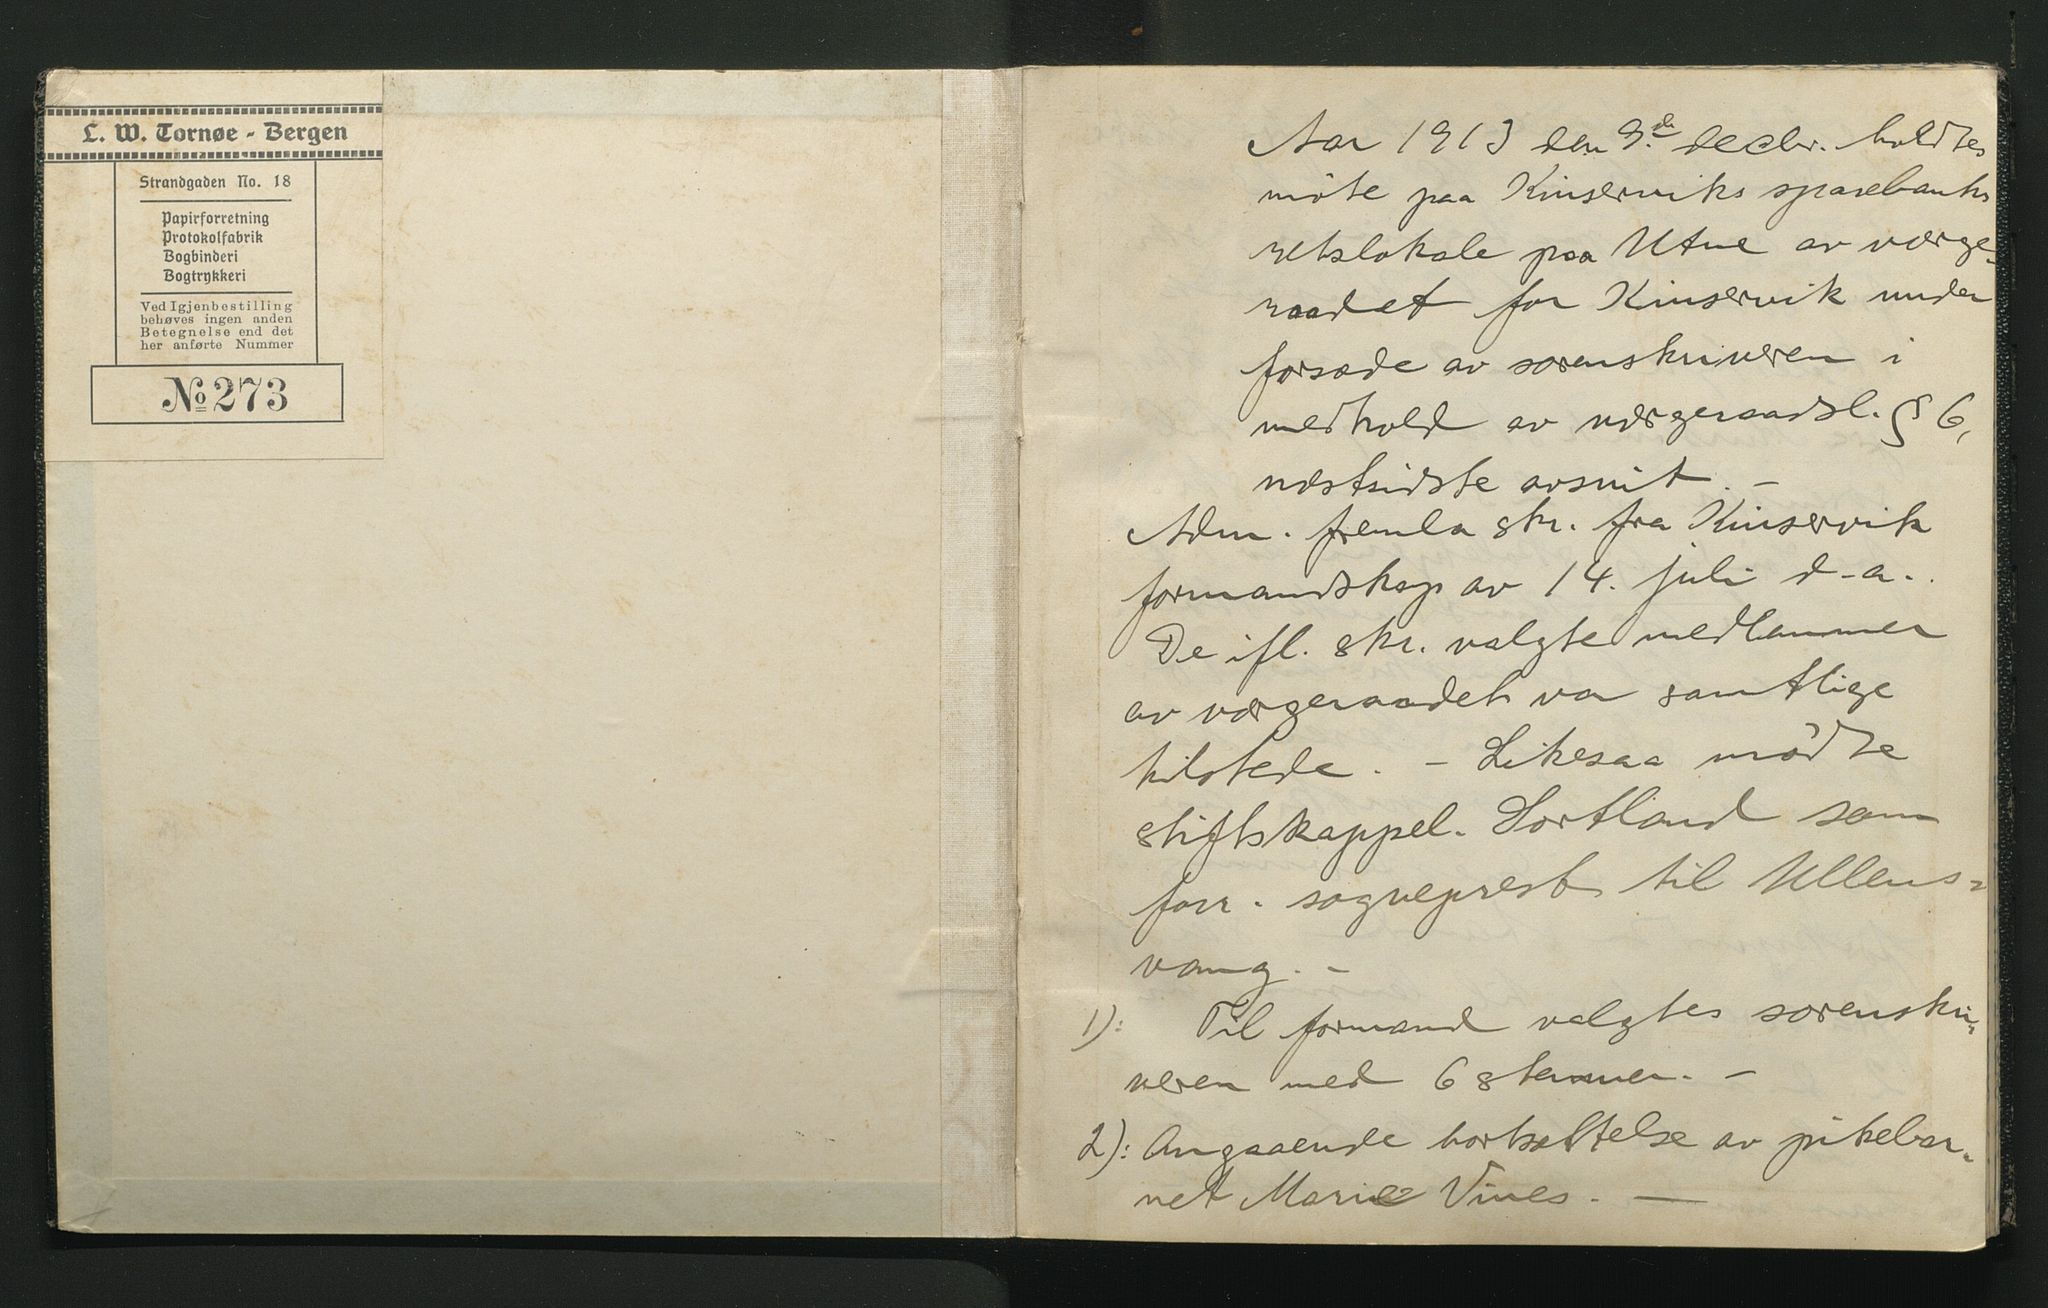 L. W. Tornøe - Bergen
Strandgaden No. 18
Papirforretning
Protokolfabrik
Bogbinderi
Bogtrykkeri
Ved Igjenbestilling
behøves ingen anden
Betegnelse end det
her anførte Nummer
No 273
Aar 1913 den 9.de decbr. holdtes
møte paa Kinserviks sparebanks
retslokale paa Utne av værge-
raadet for Kinservik under
forsæde av sorenskriveren i
medhold av værgeraadsl. § 6,
næstsidste avsnit. -
Adm. fremla skr. fra Kinservik
formandskap av 14. juli d-a.
De ifl. skr. valgte medlemmer
av værgeraadet var samtlige
tilstede. - Likesaa mødte
stiftskappel. Sortland som
forr. sogneprest til Ullens-
vang. -
1): Til formand valgtes sorenskri-
veren med 6 stemmer. -
2): Angaaende bortsættelse av pikebar-
net Marie Vines. -